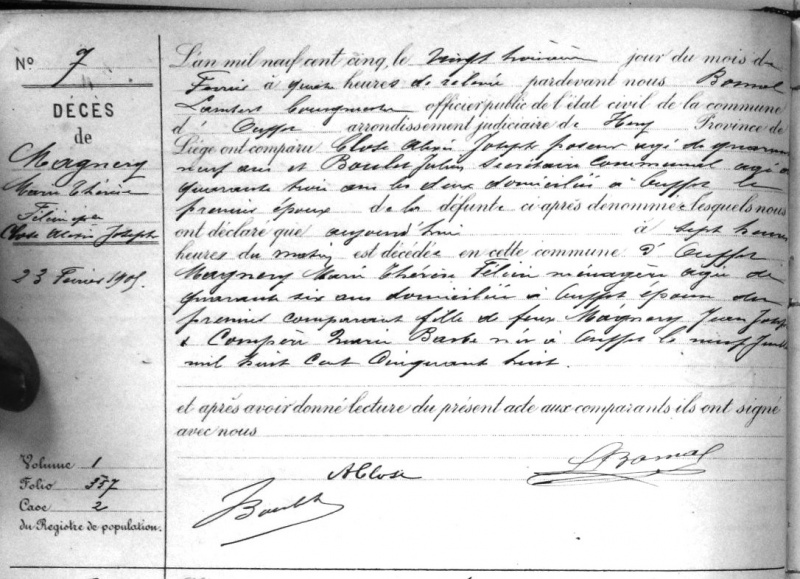 N° 7
DÉCÈS
de
Magnery
Marie Thérèse
épse
Close Alexis Joseph
23 Février 1905.
Volume 1
Folio 357
Case 2
du Registre de population.
L'an mil neuf cent cinq, le vingt troisième jour du mois de
Février à quatre heures de relevée pardevant nous Bomal
Lambert bourgmestre officier public de l'état civil de la commune
d' Ouffet arrondissement judiciaire de Huy Province de
Liége ont comparu Close Alexis Joseph poseur agé de quarante
neuf ans et Boulet Julien Secrétaire Communal agé de
quarante trois ans les deux domiciliés à Ouffet le
premier époux de la défunte ci-après dénommée lesquels nous
ont déclaré que aujourd'hui à sept heures
heures du matin est décédée en cette commune d' Ouffet
Magnery Marie Thérèse ménagère agée de
quarante six ans domiciliée à Ouffet épouse du
premier comparant fille de feux Magnery Jean Joseph
& Compère Marie Barbe née à Ouffet le neuf
mil huit cent cinquante huit.
et après avoir donné lecture du présent acte aux comparants ils ont signé
avec nous
A Close
LBomal
JBoulet